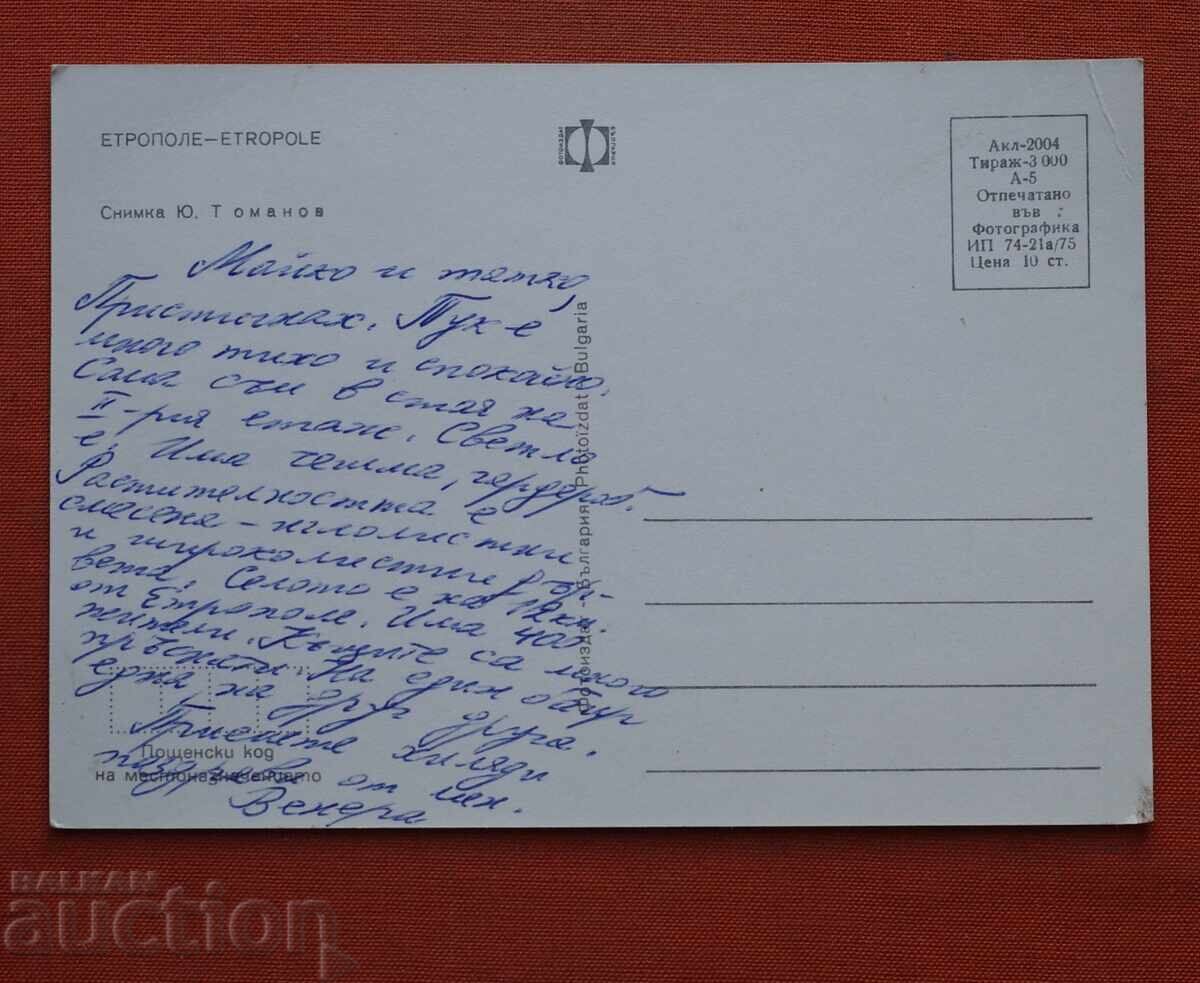 ЕТРОПОЛЕ—ETROPOLE
Снимка Ю. Томанов
ФОТОИЗДАТ
БЪЛГАРИЯ
Акл-2004
Тираж-3 000
А-5
Отпечатано
във
Фотографика
ИП 74-21а/75
Цена 10 ст.
Майко и татко,
Пристигнах. Тук е
много тихо и спокойно.
Сама съм в стая на
II-рия етаж. Светло
е. Има чешма, гардероб.
Растителността е
смесена - иглолистни
и широколистни дър-
вета. Селото е на 12 км.
от Етрополе. Има 400
жители. Къщите са много
пръснати. На един баир
една, на друг друга.
Приемете хиляди
поздрави от мен.
Венера
Фотоиздат - България Photoizdat Bulgaria
Пощенски код
на местоназначението
BALKAN
auction